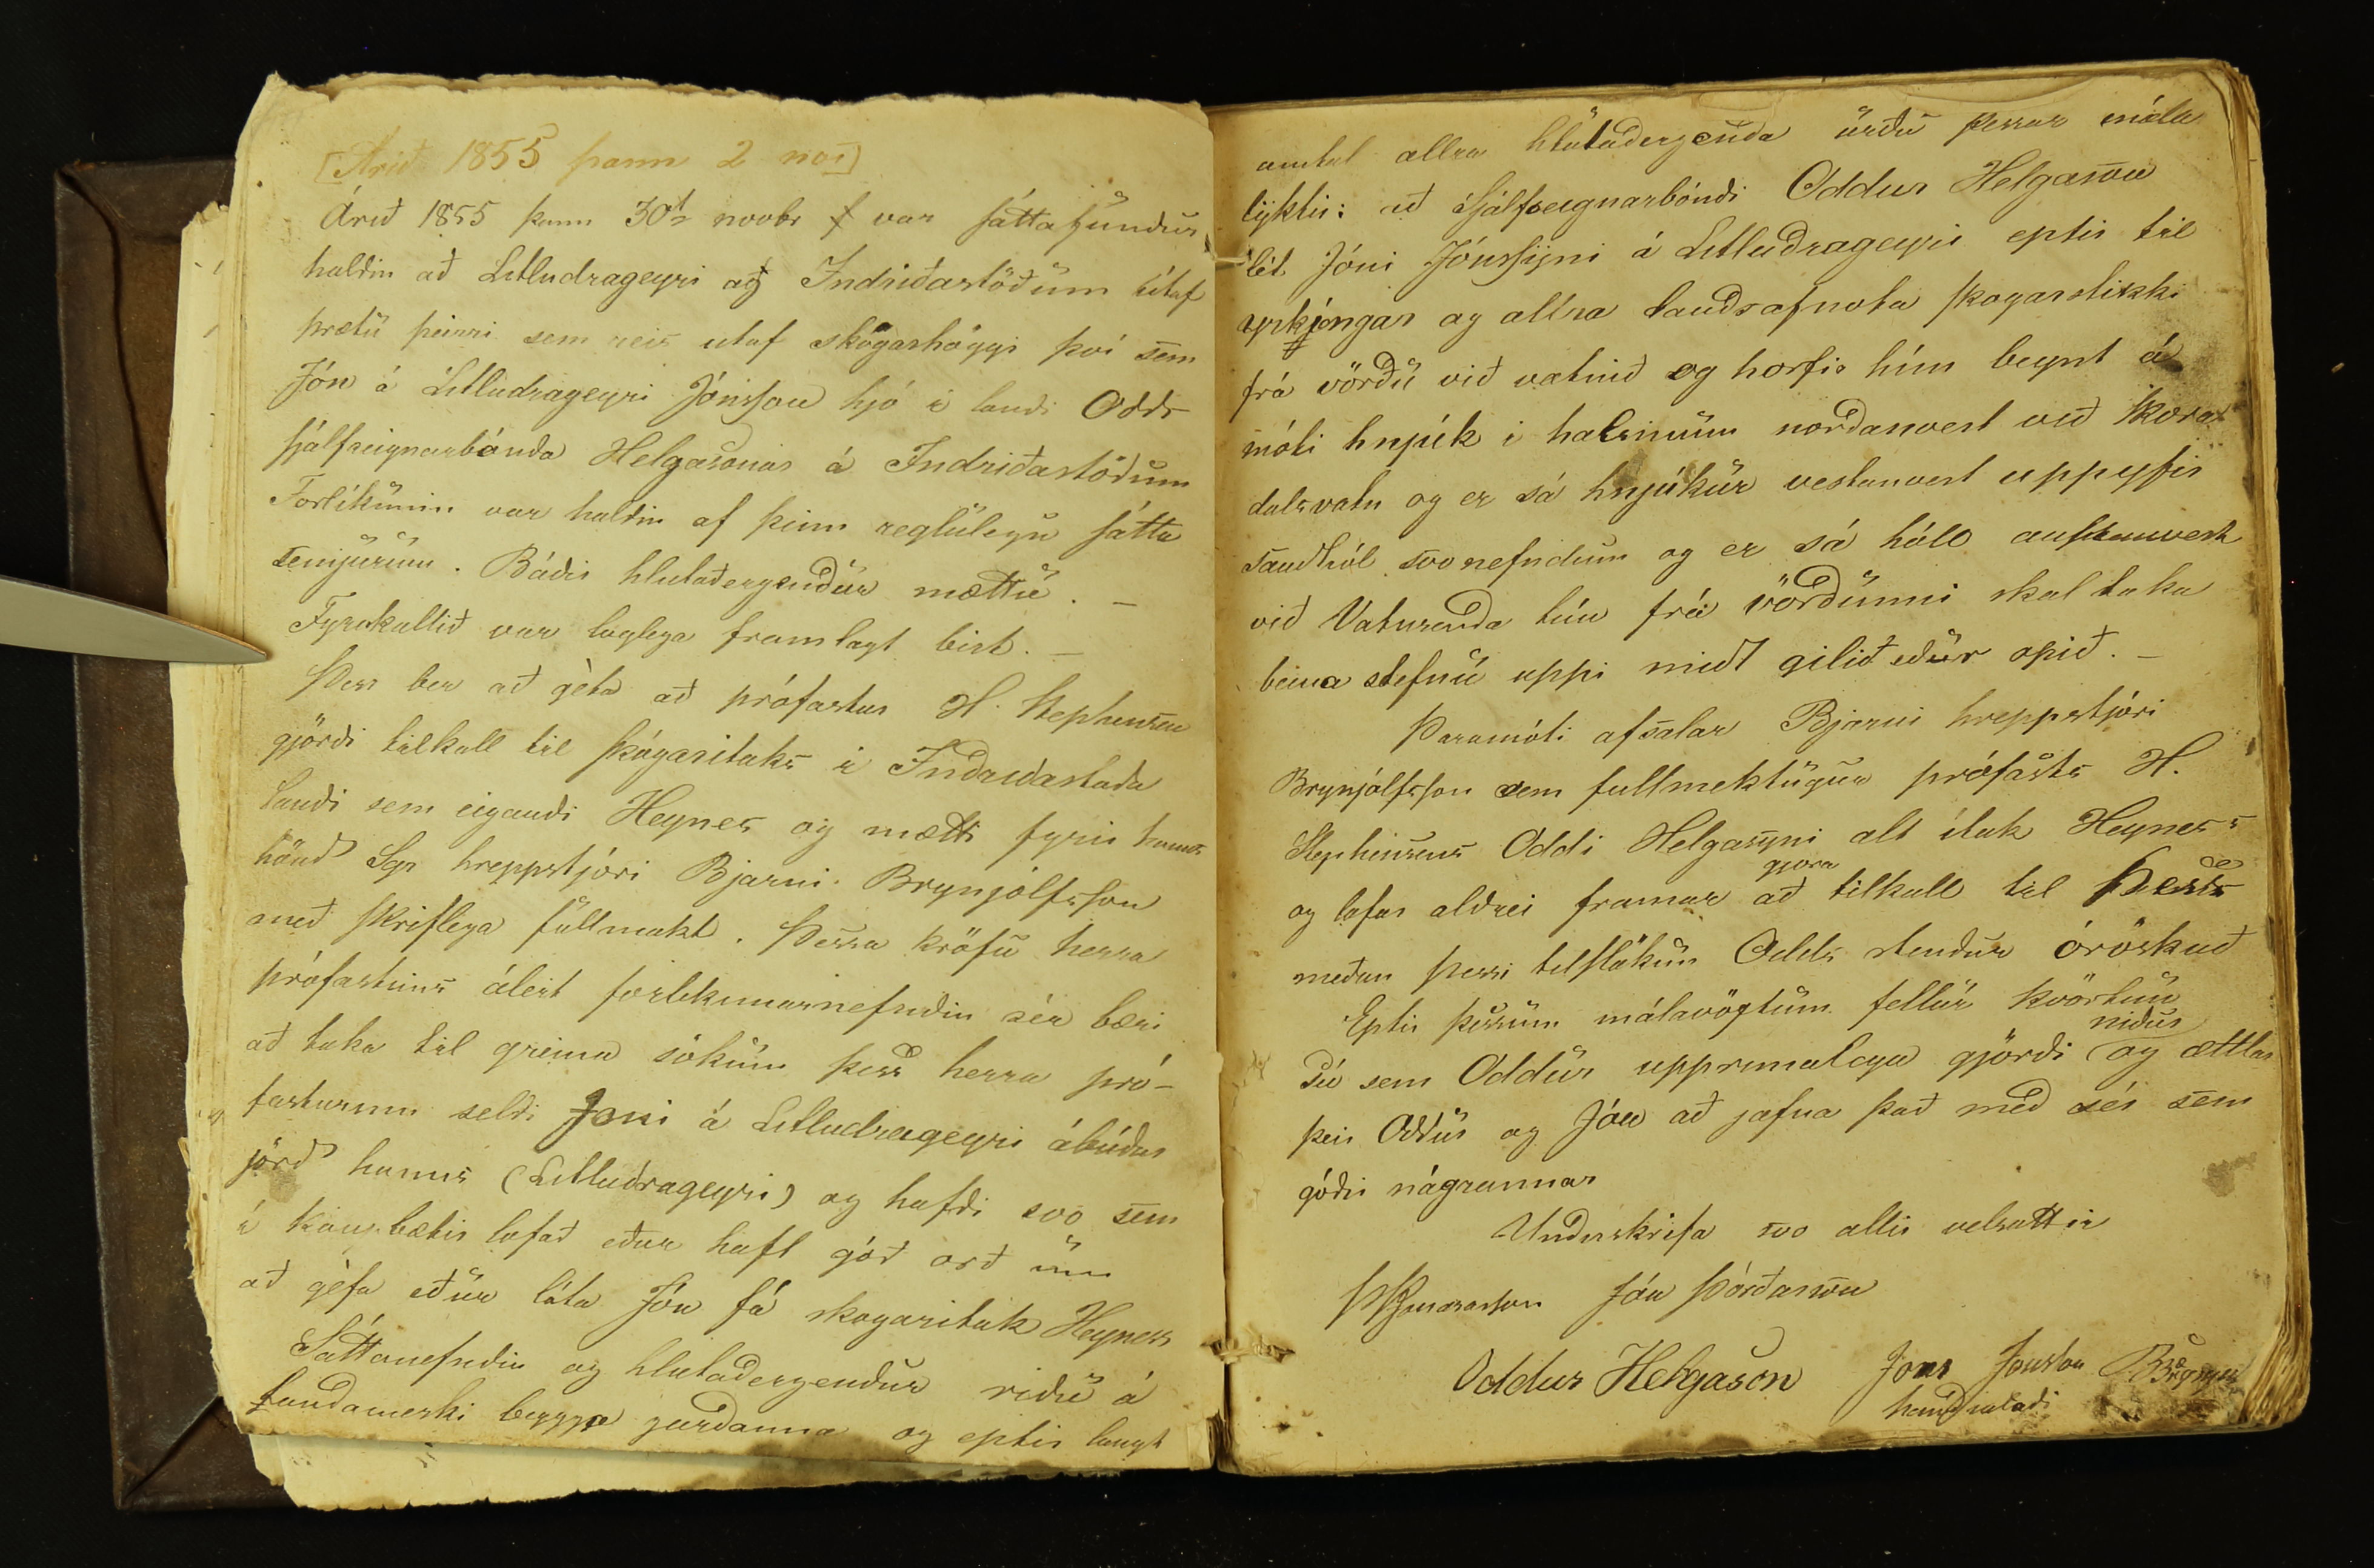 [Árið 1855 þann 2 nov]
Árið 1855 þann 30ta novbr var sáttafundur
haldin að Litludrageyri og Indriðastöðum útaf
þrætu þeirri sem reis utaf skógarhöggi því sem
Jón á Litludrageyri Jónsson hjó i landi Odds
sjálfseignarbónda Helgasonar á Indriðastöðum
Forlíkunin var haldin af þeim reglulegu sátta
semjurum. Báðir hlutaðeygendur mættu. –
Fyrekallið var löglega framlagt birt. –
Þess ber að géta að prófastur H. Stephensen
gjörði tilkall til skógarítaks i Indriðastaða
landi sem eigandi Heynes og mætti fyrir hanns
hönd Sgr hreppstjóri Bjarni Brynjólfsson
með skriflega fullmakt. Þessa kröfu herra
prófastsins áleit forlikunarnefndin sér bæri
að taka til greina sökum þess herra pró-
fasturinn seldi Joni á Litludrageyri ábúðar
jörð hanns (Litludrageyri) og hafði svo sem
i kaupbætir lofað eður haft góð orð um
að géfa eður láta Jón fá skogaritak Heyness
Sáttanefndin og hlutaðeygendur riðu á
landamerki beggja jarðanna og eptir langt
umtal allra hlutaðeygenda urðu þessar mála
lyktir: að Sjálfseignarbóndi Oddur Helgason
lét Jóni Jónssyni á Litludrageyri eptir til
yrkjöngar og allra landsafnota skogarstikki
frá vörðu við vatnið og horfir hún beynt á
móti hnjúk i halsinum norðanvert við Skora
dalsvatn og er sá hnjúkur vestanvert uppyfir
sandhól svonefndum og er sá hóll austanvert
við Vatnsenda tún frá vörðunni skal taka
beina stefnu uppi midt gilið eður opið. –
Þaramóti afsalar Bjarni hreppstjóri
Brynjólfsson sem fullmektugur prófasts H.
Stephensens Oddi Helgasyni alt ítak Heyness
og lofar aldrei framar að gjöra tilkall til þess
meðan þessi tilslökun Odds stendur óröskuð
Eptir þessum málavöxtum fellur kvörtun
sú sem Oddur upprunalega gjörði niður og ættla
þeir Oddur og Jón að jafna það með sér sem
góðir nágrannar
Underskrifa svo allir velsattir
Jón Þórðarson
Oddur Helgason Jons Jonsson
handsalaði